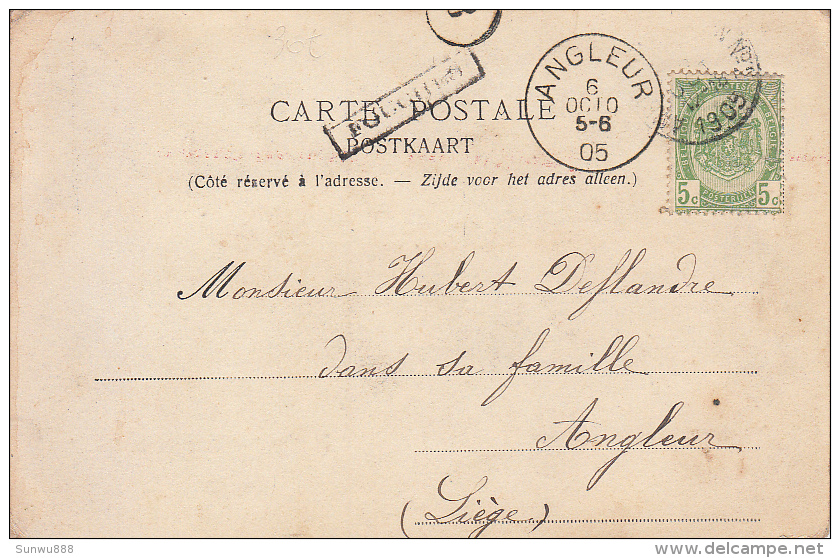 30t
CARTE POSTALE
POSTKAART
(Côté réservé à l'adresse. — Zijde voor het adres alleen.)
ANGLEUR
6
OCTO
5-6
05
1905
5c 5c
POSTERIJEN
Monsieur Hubert Deflandre
dans sa famille
Angleur
(Liège)
Sunwu888
delcampe.net